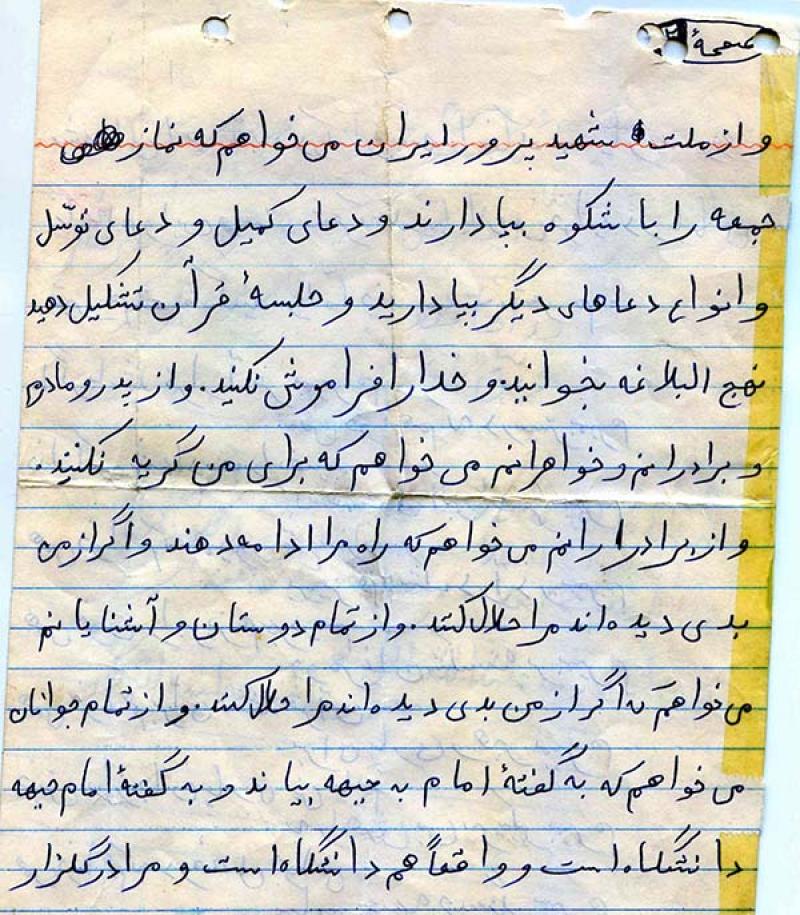 صفحهٔ ۲
و از ملت شهید پرور ایران می خواهم که نماز
جمعه را با شکوه بپا دارند و دعای کمیل و دعای توسّل
و انواع دعاهای دیگر بپا دارید و جلسهٔ قرآن تشکیل دهید
نهج البلاغه بخوانید. و خدا را فراموش نکنید. و از پدر و مادرم
و برادرانم و خواهرانم می خواهم که برای من گریه نکنید.
و از برادرارانم می خواهم که راه مرا ادامه دهند و اگر از من
بدی دیده اند مرا حلال کنند. و از تمام دوستان و آشنایانم
می خواهم که اگر از من بدی دیده اند مرا حلال کنند. و از تمام جوانان
می خواهم که به گفتهٔ امام به جبهه بیاند و به گفتهٔ امام جبهه
دانشگاه است و واقعاً هم دانشگاه است و مرا در گلزار